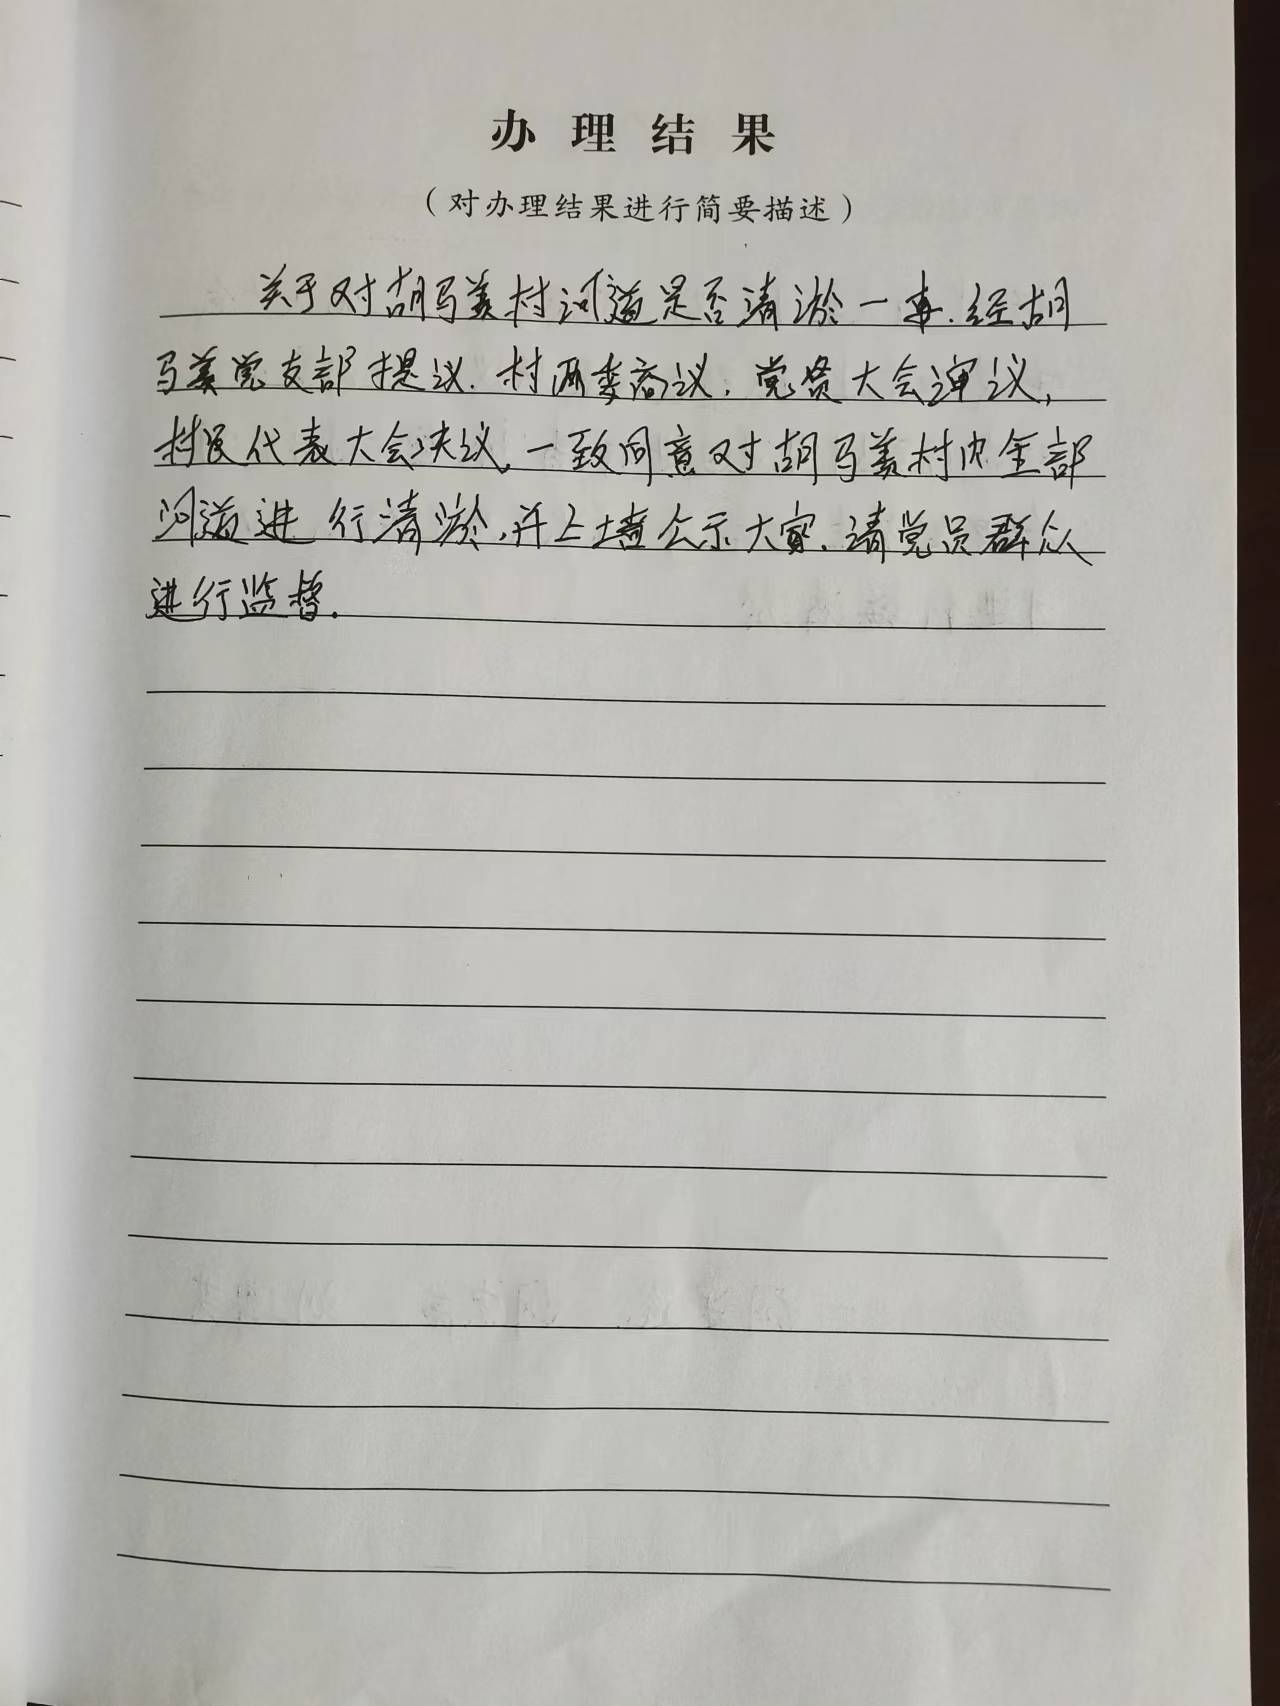 办理结果
（对办理结果进行简要描述）
关于对胡马姜村河道是否清淤一事.经胡
马姜党支部提议.村两委商议.党员大会审议,
村民代表大会决议,一致同意对胡马姜村内全部
河道进行清淤,并上墙公示大家.请党员群众
进行监督.